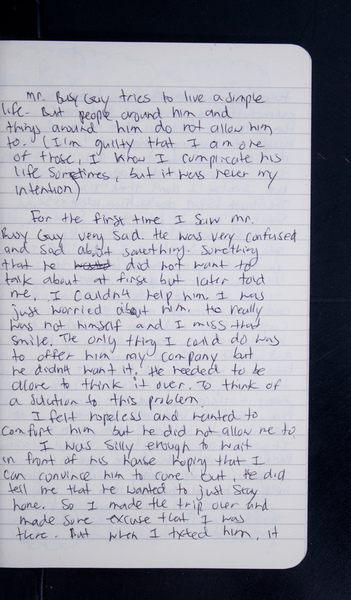 Mr. Busy Guy tries to live a simple
life. But people around him and
things around him do not allow him
to. (I'm guilty that I am one
of those, I know I complicate his
life sometimes, but it was never my
intention)
For the first time I saw Mr.
Busy Guy very sad. He was very confused
and sad about something. Something
that he did not want to
talk about at first but later told
me. I couldn't help him. I was
just worried about him. He really
was not himself and I miss that
smile. The only thing I could do was
to offer him my company but
he didn't want it. He needed to be
alone to think it over. To think of
a solution to this problem.
I felt hopeless and wanted to
comfort him but he did not allow me to.
I was silly enough to wait
in front of his house hoping that I
can convince him to come out. He did
tell me that he wanted to just stay
home. So I made the trip over and
made some excuse that I was
there. But when I txted him, it